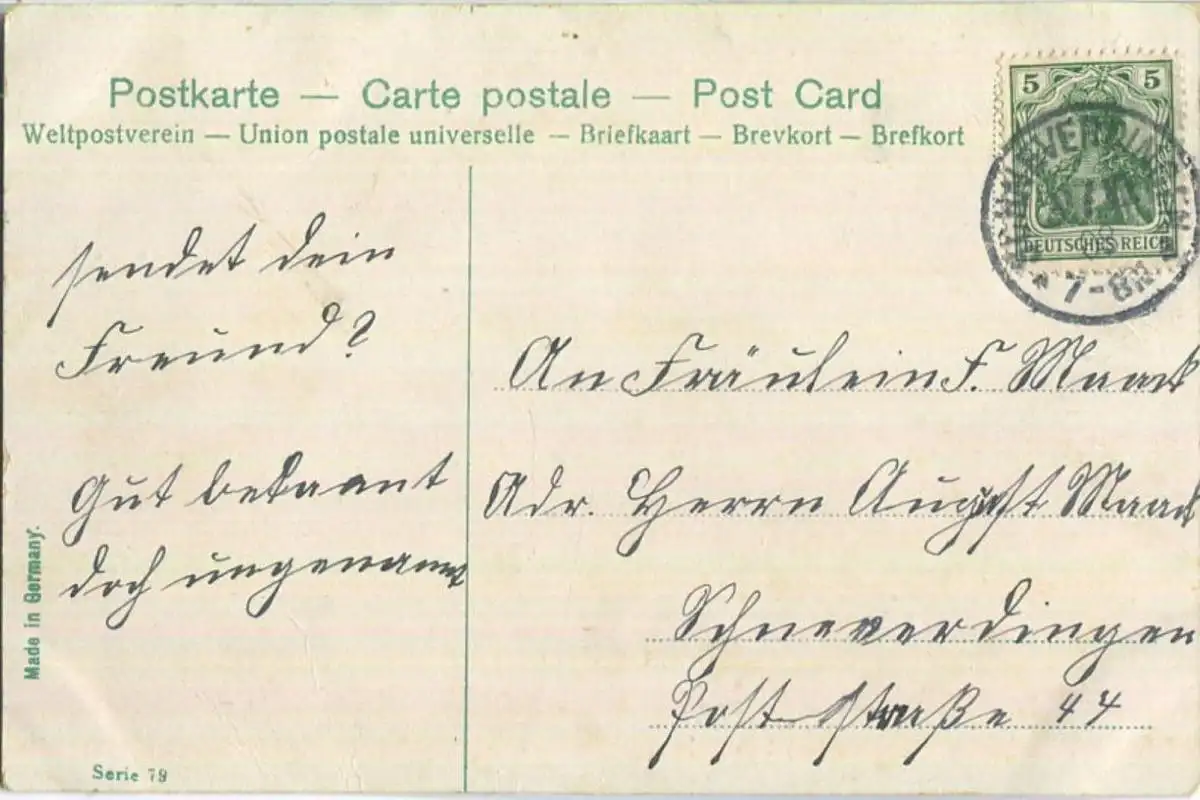 Postkarte — Carte postale — Post Card
Weltpostverein — Union postale universelle — Briefkaart — Brevkort — Brefkort
5 5
DEUTSCHES REICH
7-8
sendet dein
Freund?
Gut bekannt
doch ungenannt
An Fräulein F. Maack
Adr. Herrn August Maack
Schneverdingen
Poststraße 44
Made in Germany.
Serie 79